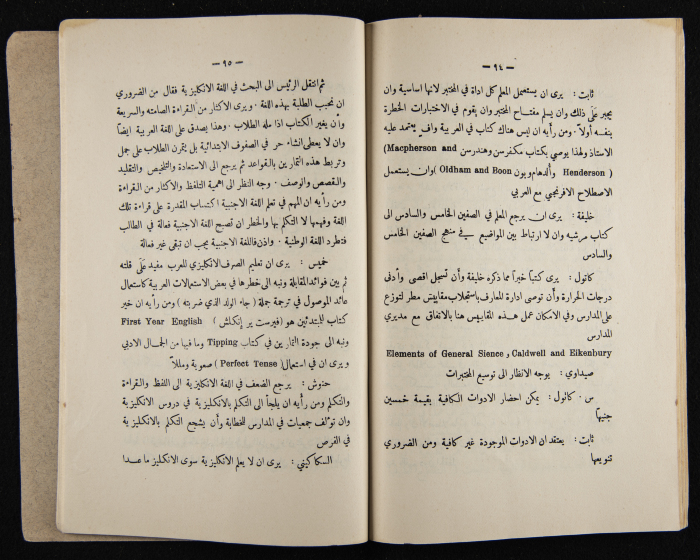 — ٩٤ —
ثابت : يرى ان يستعمل المعلم كل اداة في المختبر لانها اساسية وان
يجبر على ذلك وان يسلم مفتاح المختبر وان يقوم في الاختبارات الخطرة
بنفسه أولاً . ومن رأيه ان ليس هناك كتاب في العربية واف يعتمد عليه
الاستاذ ولهذا يوصي بكتاب مكفرسن وهندرسن (Macpherson and
Henderson ) وألدهام وبون (Oldham and Boon) وان يستعمل
الاصطلاح الافرنجي مع العربي
خليفة : يرى ان يرجع المعلم في الصفين الخامس والسادس الى
كتاب مرشيه وان لا ارتباط بين المواضيع في منهج الصفين الخامس
والسادس
كاتول : يرى كتباً خبراً مما ذكره خليفة وأن تسجل اقصى وأدنى
درجات الحرارة وأن توصى ادارة المعارف باستجلاب مقاييس مطر لتوزع
على المدارس وفي الامكان عمل هذه المقاييس هنا بالاتفاق مع مديري
المدارس
Elements of General Sience , Caldwell and Eikenbury
صيداوي : يوجه الانظار الى توسيع المختبرات
س . كاتول : يمكن احضار الادوات الكافية بقيمة خمسين
جنيهاً
ثابت : يعتقد ان الادوات الموجودة غير كافية ومن الضروري
تنويعها
— ٩٥ —
ثم انتقل الرئيس الى البحث في اللغة الانكليزية فقال من الضروري
ان نحبب الطلبة بهذه اللغة . ويرى الاكثار من القراءة الصامتة والسريعة
وأن يغير الكتاب اذا مله الطلاب . وهذا يصدق على اللغة العربية ايضاً
وان لا يعطى انشاء حر في الصفوف الابتدائية بل يتمرن الطلاب على جمل
وتربط هذه التمارين بالقواعد ثم يرجع الى الاستعادة والتلخيص والتقليد
والقصص والوصف . وجه النظر الى اهمية التلفظ والاكثار من القراءة
ومن رأيه ان المهم في تعلم اللغة الاجنبية اكتساب المقدرة على قراءة تلك
اللغة وفهمها لا التكلم بها والخطر ان تصبح اللغة الاجنبية فعالة في الطالب
فتطرد اللغة الوطنية . واذن فاللغة الاجنبية يجب ان تبقى غير فعالة
خميس : يرى ان تعليم الصرف الانكليزي للعرب مفيد على قلته
ثم بين فوائد المقابلة ونبه الى خطرها في بعض الاستعمالات العربية كاستعمال
عائد الموصول في ترجمة جملة ( جاء الولد الذي ضربته ) ومن رأيه ان خير
كتاب للمبتدئين هو (فيرست ير إنكلش ) First Year English
ونبه الى جودة التمارين في كتاب Tipping وما فيها من الجمال الادبي
ويرى ان في استعمال ( Perfect Tense ) صعوبة ومللاً
حنوش : يرجع الضعف في اللغة الانكليزية الى اللفظ والقراءة
والتكلم ومن رأيه ان يلجأ الى التكلم بالانكليزية في دروس الانكليزية
وان تؤلف جمعيات في المدارس للخطابة وأن يشجع التكلم بالانكليزية
في الفرص
السكاكيني : يرى ان لا يعلم الانكليزية سوى الانكليز ما عدا